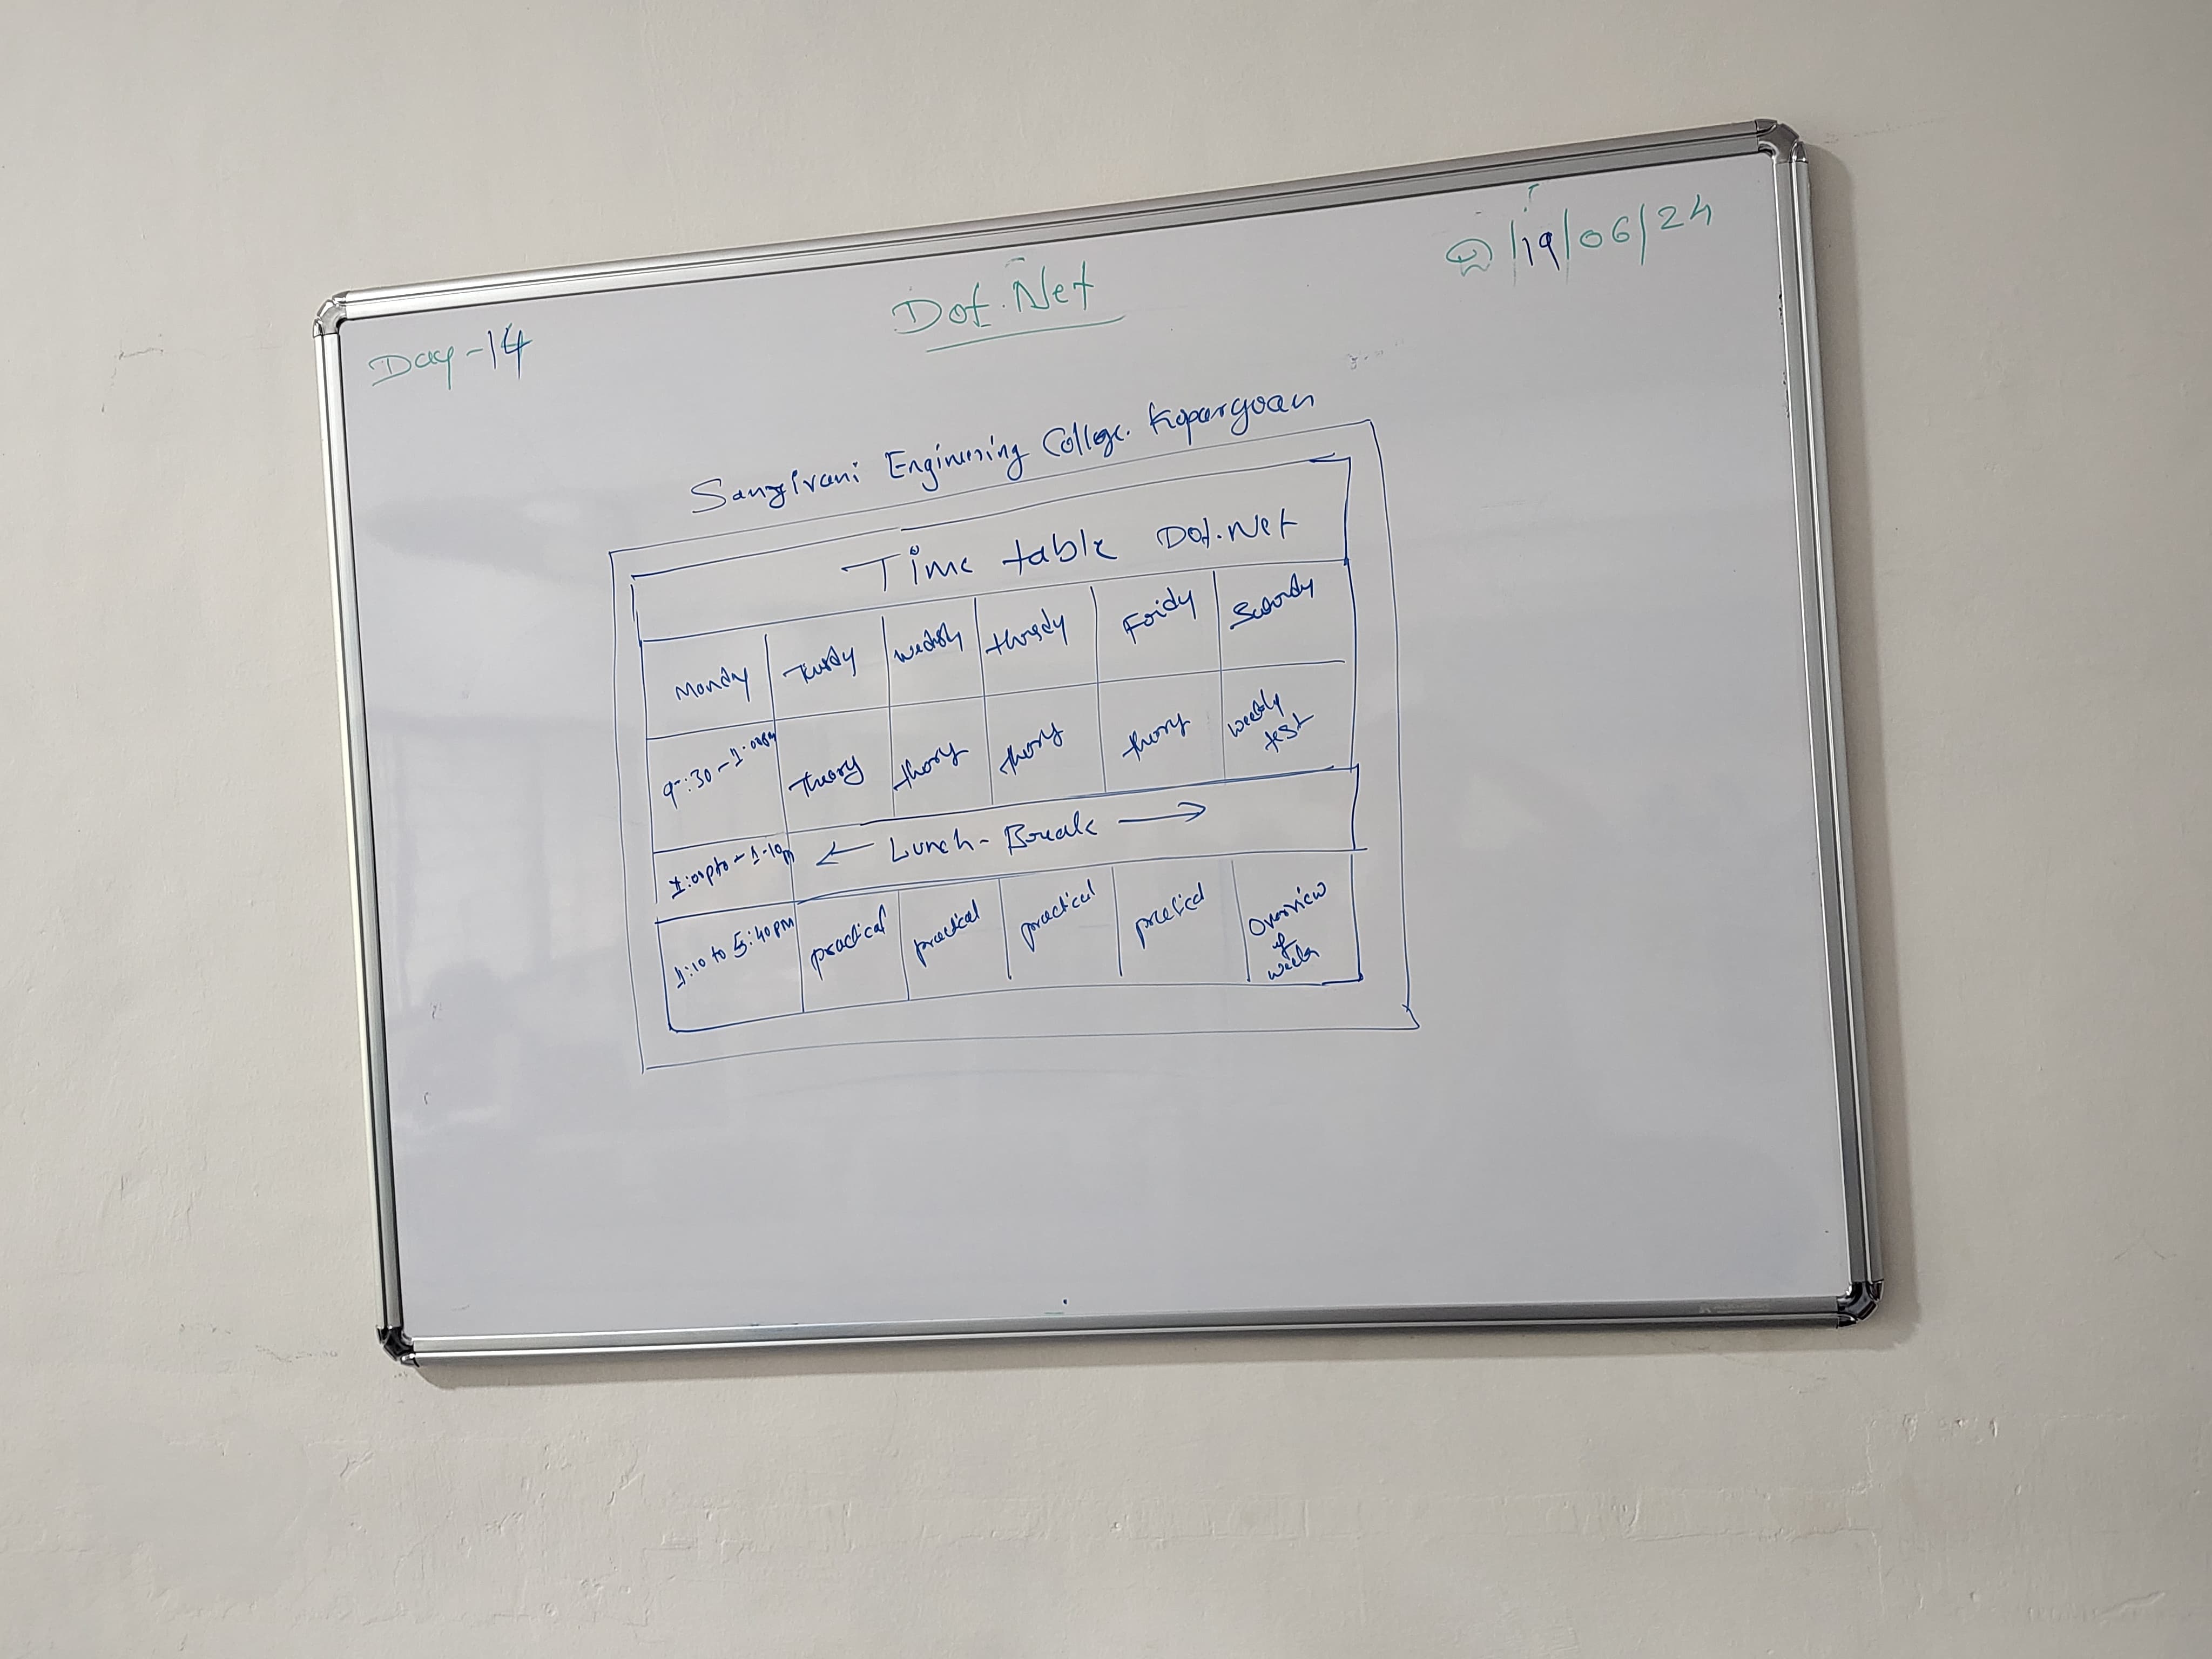 Dot.Net
Day-14
दि/19/06/24
Sanjivani Engineering College. Kopargoan
Time table Dot.Net
Mondy Tusdy thursdy Fridy
9:30 - 1:00 Theory thory thory thory weekly test
← Lunch - Break →
1:10 to 5:40 pm practical practical practical practicl Overview of week